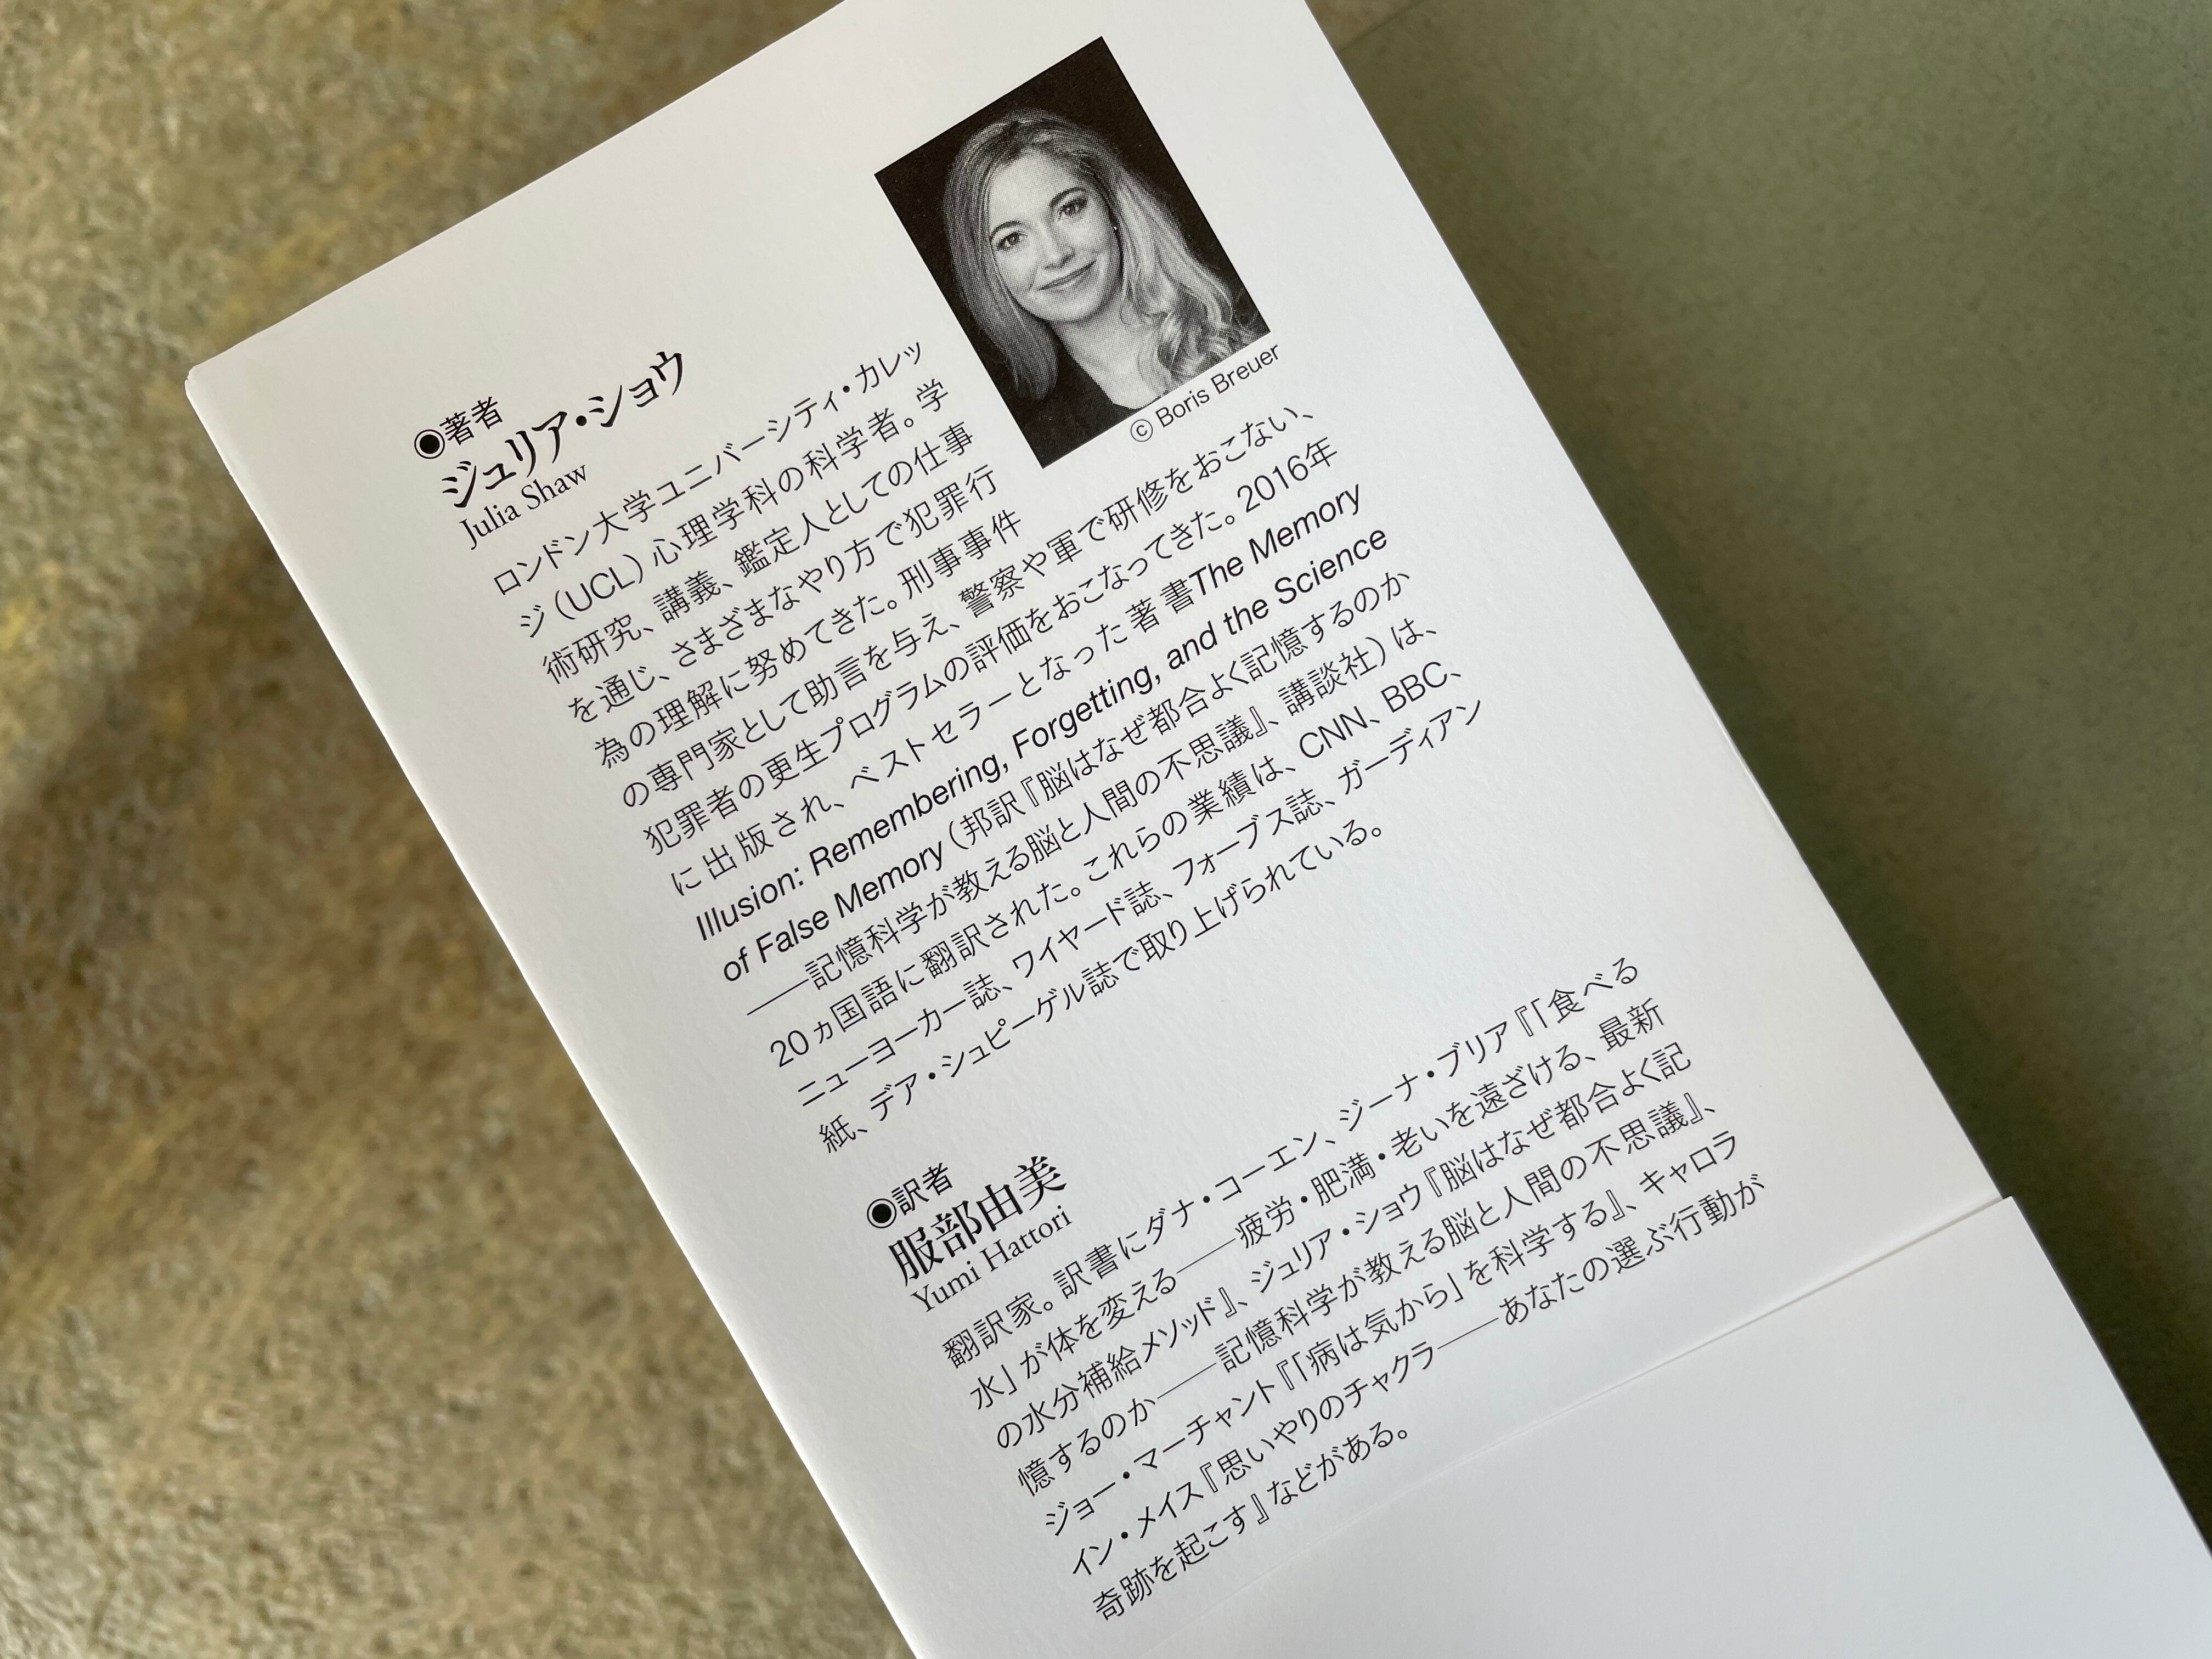 © Boris Breuer
◉著者
ジュリア・ショウ
Julia Shaw
ロンドン大学ユニバーシティ・カレッ
ジ（UCL）心理学科の科学者。学
術研究、講義、鑑定人としての仕事
を通じ、さまざまなやり方で犯罪行
為の理解に努めてきた。刑事事件
の専門家として助言を与え、警察や軍で研修をおこない、
犯罪者の更生プログラムの評価をおこなってきた。2016年
に出版され、ベストセラーとなった著書The Memory
Illusion: Remembering, Forgetting, and the Science
of False Memory（邦訳『脳はなぜ都合よく記憶するのか
――記憶科学が教える脳と人間の不思議』、講談社）は、
20ヵ国語に翻訳された。これらの業績は、CNN、BBC、
ニューヨーカー誌、ワイヤード誌、フォーブス誌、ガーディアン
紙、デア・シュピーゲル誌で取り上げられている。
◉訳者
服部由美
Yumi Hattori
翻訳家。訳書にダナ・コーエン、ジーナ・ブリア『「食べる
水」が体を変える――疲労・肥満・老いを遠ざける、最新
の水分補給メソッド』、ジュリア・ショウ『脳はなぜ都合よく記
憶するのか――記憶科学が教える脳と人間の不思議』、
ジョー・マーチャント『「病は気から」を科学する』、キャロラ
イン・メイス『思いやりのチャクラ――あなたの選ぶ行動が
奇跡を起こす』などがある。